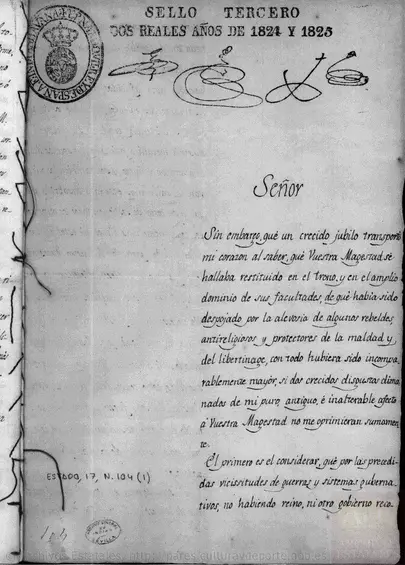 SELLO TERCERO
DOS REALES AÑOS DE 1824 Y 1825
Señor
Sin embargo, que un crecido jubilo transportó
mi corazon al saber, que Vuestra Magestad se
hallaba restituido en el trono, y en el amplio
dominio de sus facultades, de que habia sido
despojado por la alevosia de algunos rebeldes
antireligiosos y protectores de la maldad y
del libertinage, con todo hubiera sido incompa-
rablemente mayor, si dos crecidos disgustos dima-
nados de mi puro, antiguo, é inalterable afecto
a Vuestra Magestad no me oprimieran sumamen-
te.
El primero es el considerar, que por las precedi-
das vicissitudes de guerras y sistemas guberna-
tivos, no habiendo reino, ni otro gobierno reco-
ESTADO, 17, N. 104 (1)
104
SEVILLA